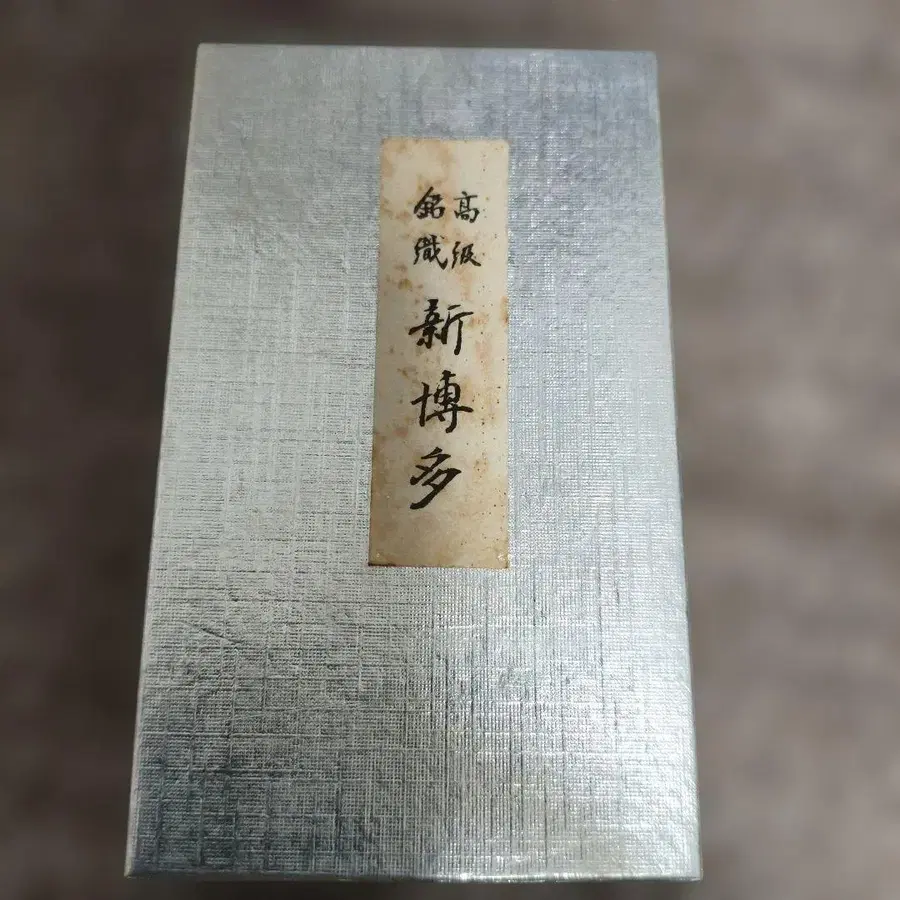 高級
銘織
新博多